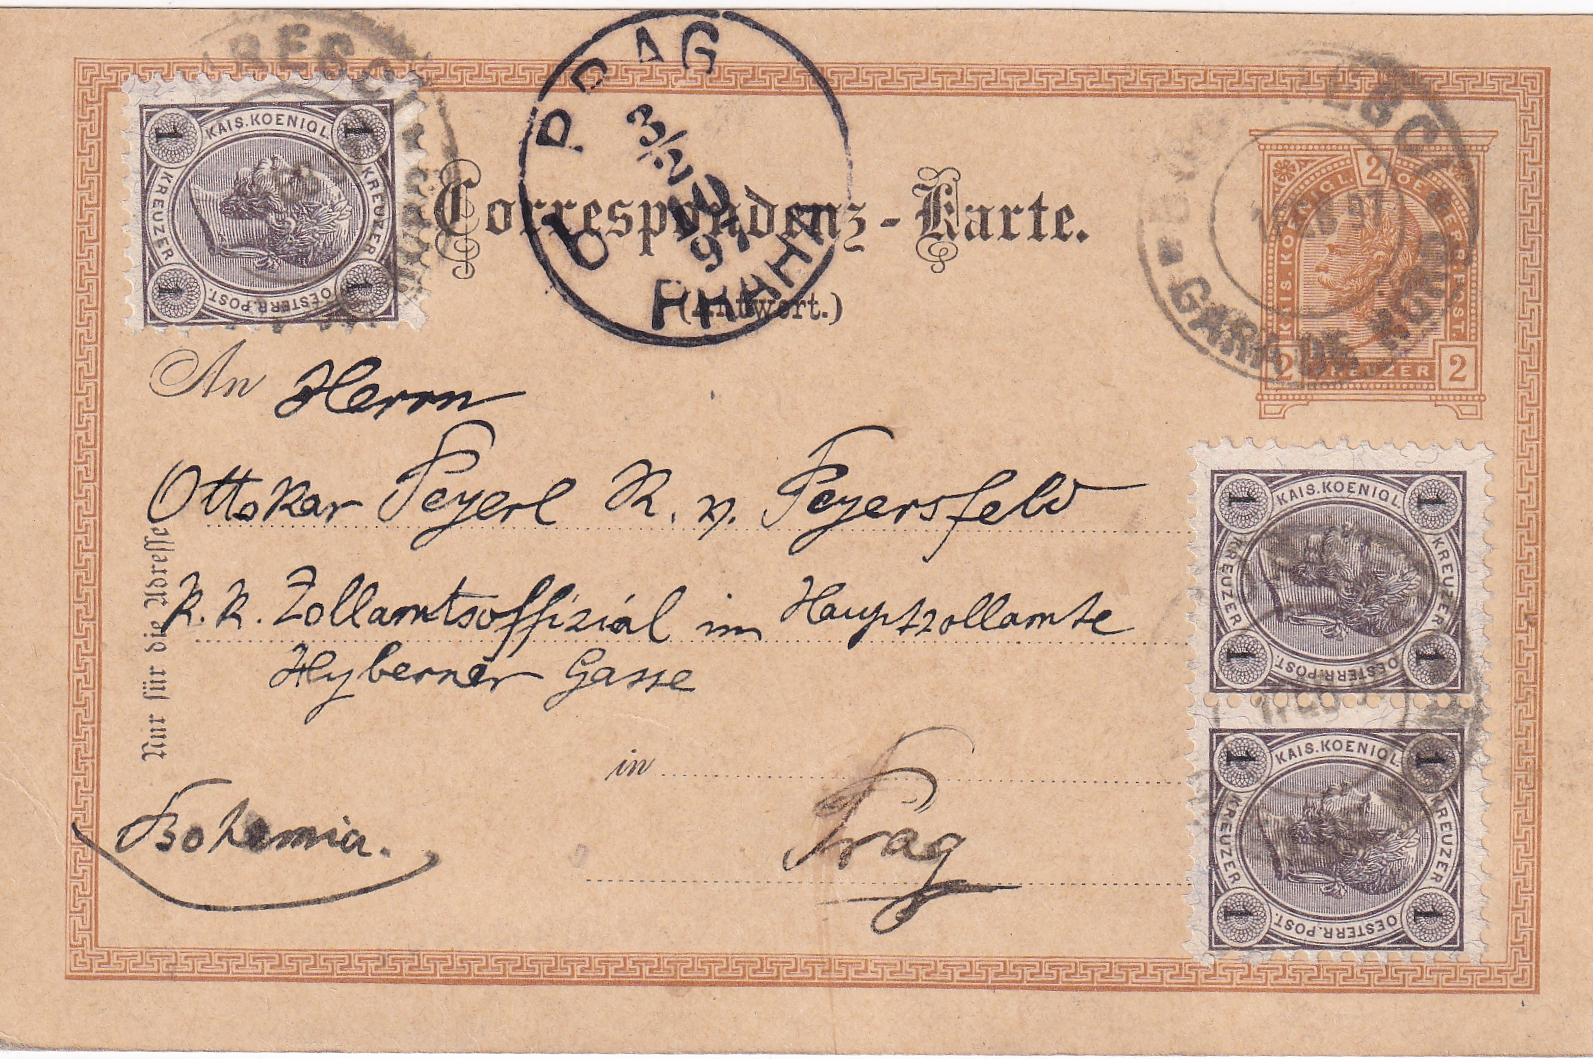 PRAG
3/2
97
6
PRAHA
1 KAIS.KOENIGL. 1
KREUZER KREUZER
1 OESTERR.POST. 1
BUCURESCI
GARA DE NORD
2
KAIS. KOENIGL. OESTERR. POST.
2 KREUZER 2
Correspondenz-Karte.
(Antwort.)
An Herrn
Ottokar Peyerl R. v. Peyersfeld
K. K. Zollamtsoffizial im Hauptzollamte
Hyberner Gasse
in Prag
Bohemia.
Nur für die Adresse
1 KAIS.KOENIGL. 1
KREUZER KREUZER
1 OESTERR.POST. 1
1 KAIS.KOENIGL. 1
KREUZER KREUZER
1 OESTERR.POST. 1